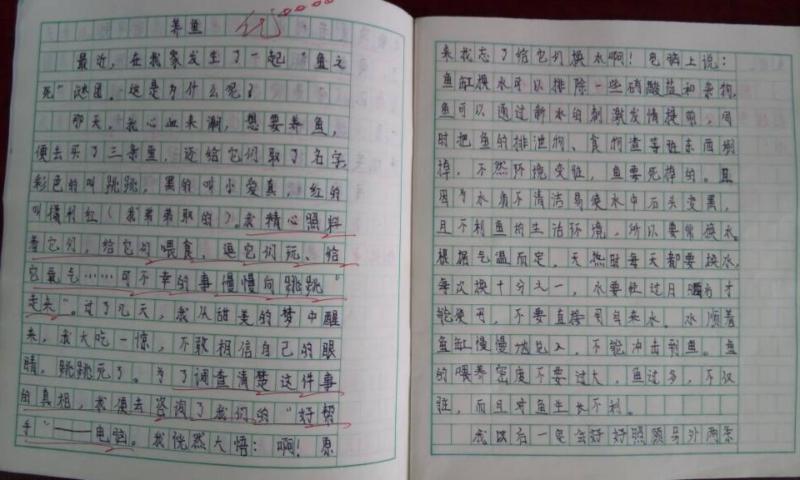 养鱼 优
最近，在我家发生了一起"鱼之
死"谜团。这是为什么呢？
那天，我心血来潮，想要养鱼，
便去买了三条鱼，还给它们取了名字，
彩色的叫跳跳，黑的叫小爱真，红的
叫保利红（我弟弟取的）。我精心照料
着它们，给它们喂食，逗它们玩、给
它氧气……可不幸的事慢慢向"跳跳"
走来"。过了几天，我从甜美的梦中醒
来，我大吃一惊，不敢相信自己的眼
睛，跳跳死了。为了调查清楚这件事
的真相，我便去咨询了我们的"好帮
手"——电脑。我恍然大悟：啊！原
来我忘了给它们换水啊！电脑上说：
鱼缸换水可以排除一些硝酸盐和杂物，
鱼可以通过新水的刺激发情提明，同
时把鱼的排泄物、食物渣等脏东西
掉，不然环境变脏，鱼要死掉的。
因为水有不清洁易使水中石头变黑，
且不利鱼的生活环境，所以要常换水。
根据气温而定，天热时每天都要换水，
每次换十分之一，水要使过月才
能使用，不要直接用自来水。水顺着
鱼缸慢慢加入，不能冲击到鱼。鱼
的喂养密度不要过大，鱼过多，不仅
脏，而且对鱼生长不利。
我以后一定会好好照顾另外两条